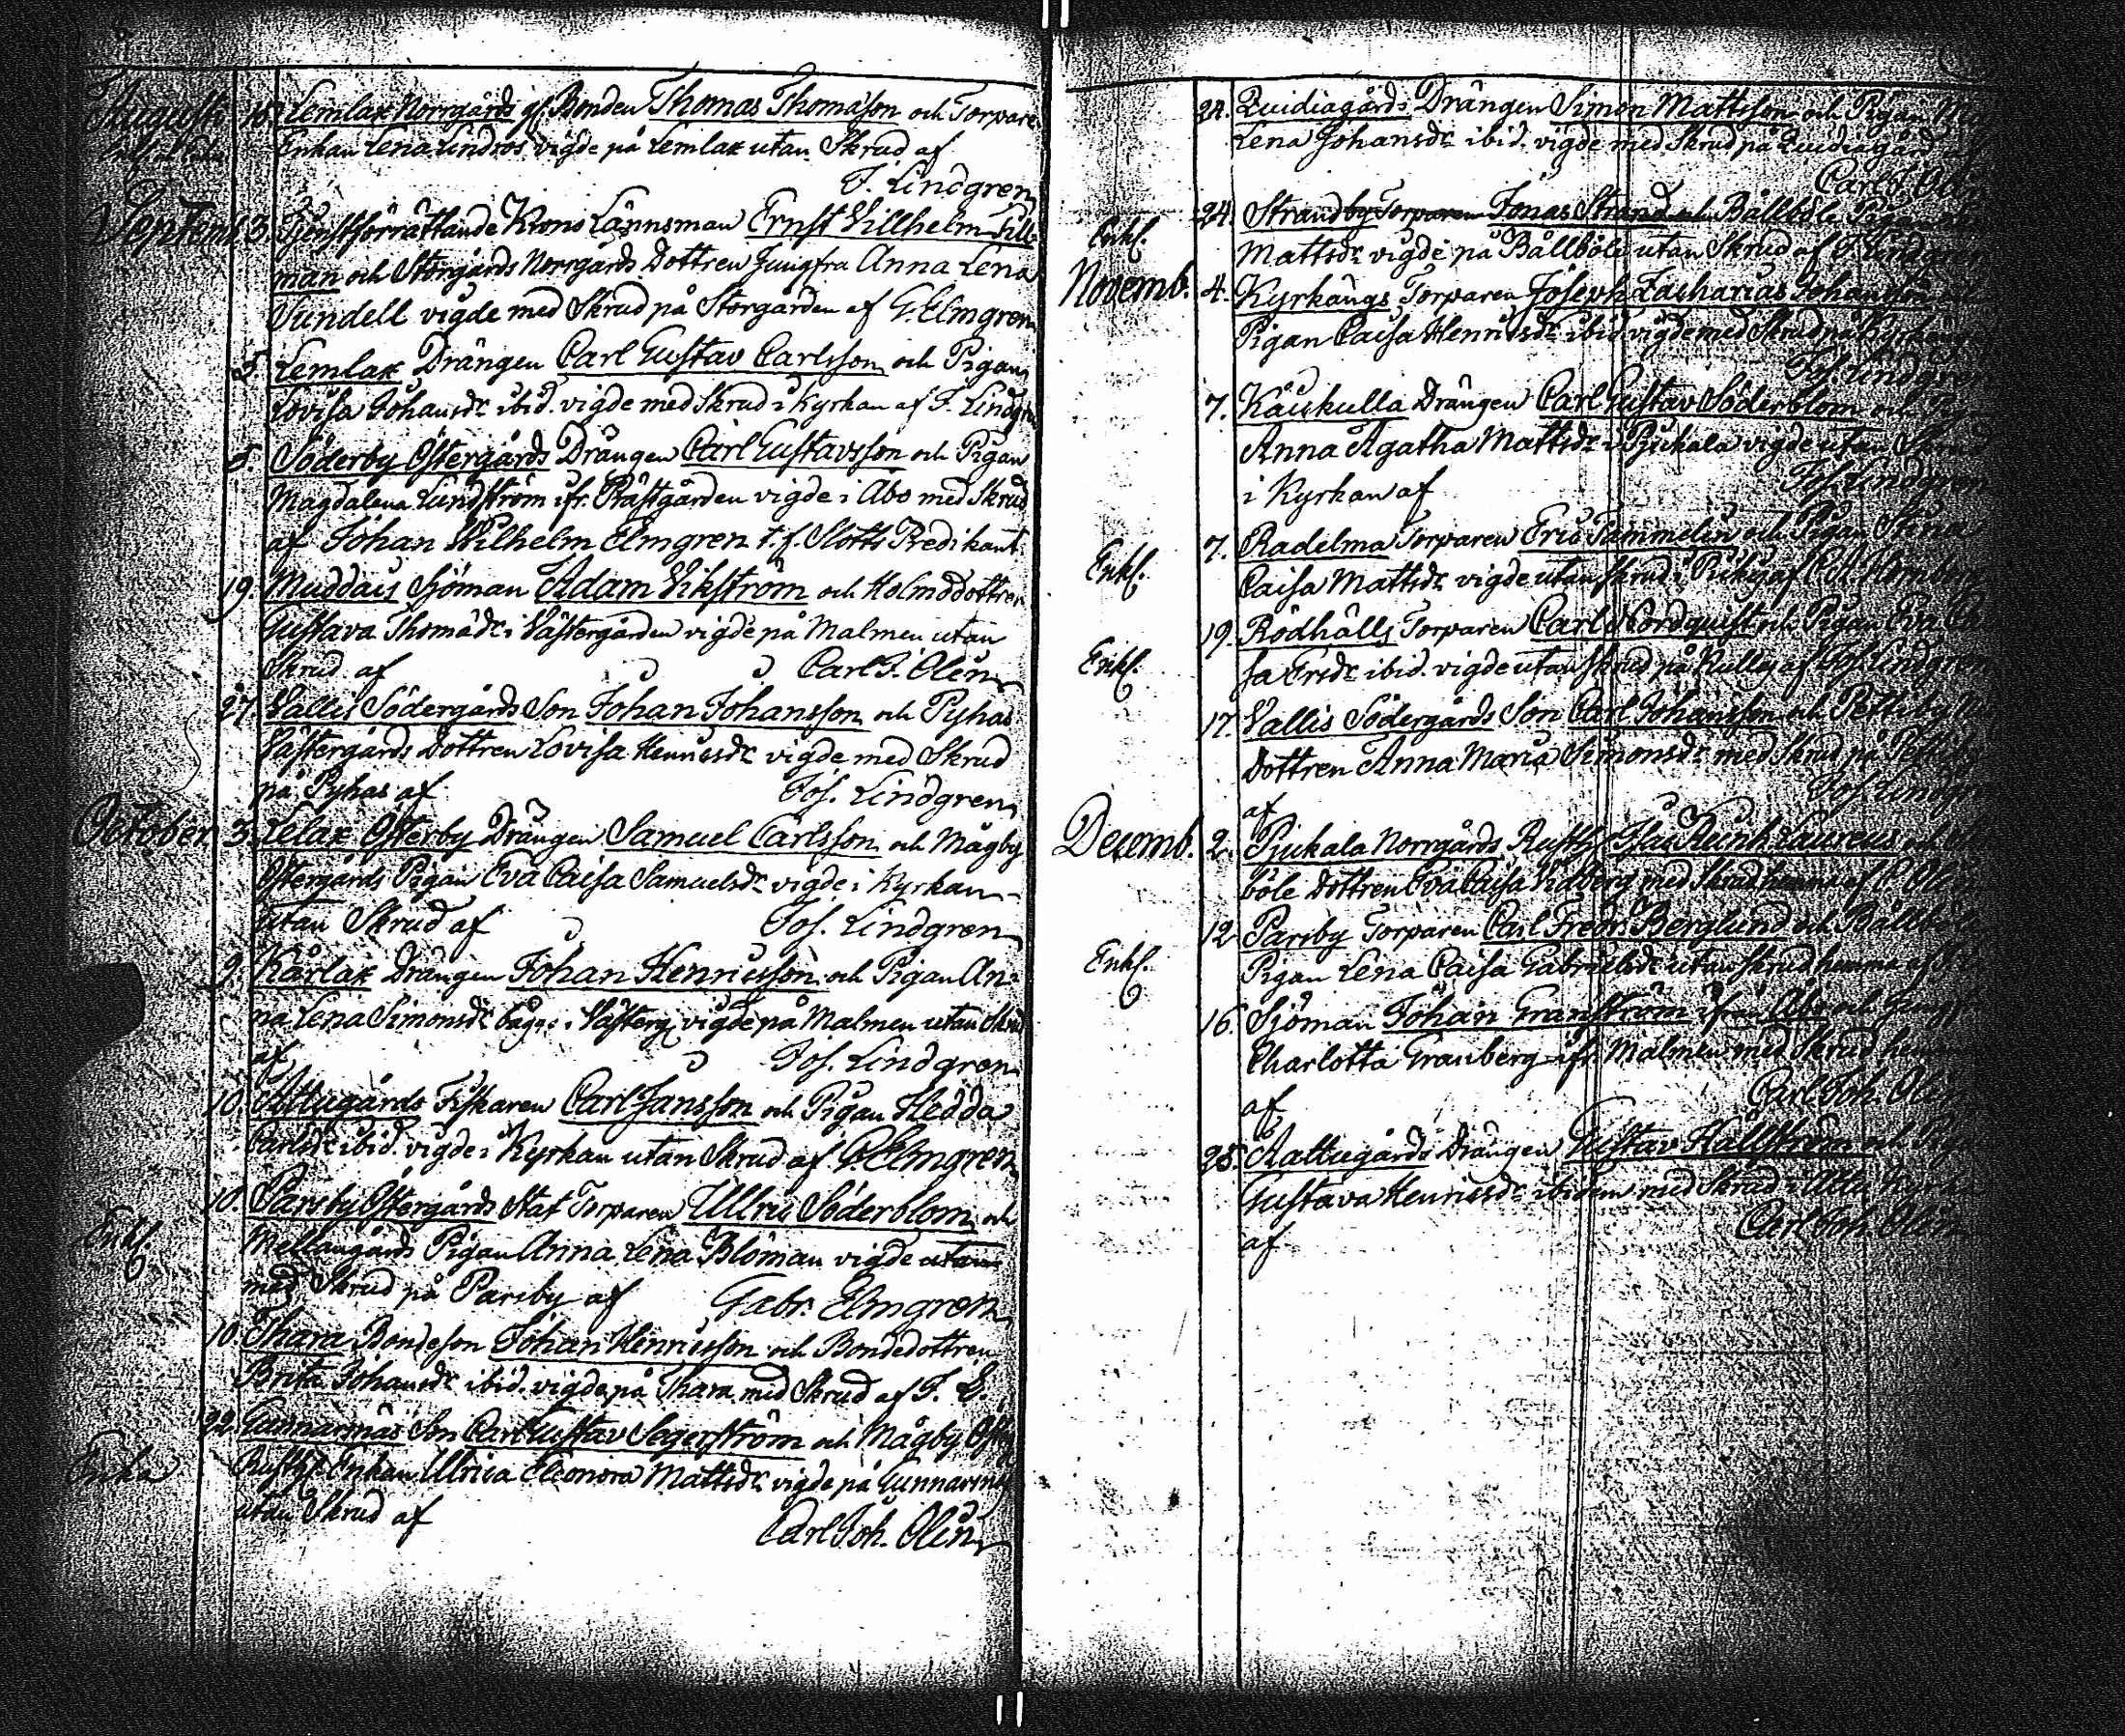 Augusti 18. Lemlax Norrgårds gf. Bonden Thomas Thomasson och Torpare
Enkan Lena Lindros vigde på Lemlax utan Skrud af
F. Lindgren
Septemb 3. Tjenstförrättande Krono Länsman Ernst Villhelm Lill-
man och Storgårds Norrgårds Dottren Jungfru Anna Lena
Sundell vigde med Skrud på Storgården af G. Elmgren
5. Lemlax Drängen Carl Gustav Carlsson och Pigan
Lovisa Johansdr ibid. vigde med Skrud i Kyrkan af F. Lindgren
5. Söderby Östergårds Drängen Carl Gustavsson och Pigan
Magdalena Lundström ifr. Prästgården vigde i Åbo med Skrud
af Johan Wilhelm Elmgren t. f. Slotts Predikant.
19. Muddais Sjöman Adam Vikström och Holm ddottren
Gustava Thomædr i Västergården vigde på Malmen utan
Skrud af Carl J. Olin
27. Vallis Södergårds Son Johan Johansson och Pyhas
Västergårds Dottren Lovisa Henricsdr vigde med Skrud
på Pyhas af Jos. Lindgren
October 3. Lelax Österby Drängen Samuel Carlsson och Mågby
Östergårds Pigan Eva Caisa Samuelsdr vigde i Kyrkan
utan Skrud af Jos. Lindgren
9. Kårlax Drängen Johan Henricsson och Pigan An-
na Lena Simonsdr bägge i Västerg vigde på Malmen utan Skrud
af Jos. Lindgren
10. Attugårds Fiskaren Carl Jansson och Pigan Hedda
Carlsdr ibid. vigde i Kyrkan utan Skrud af G Elmgren
10. Parsby Östergårds Stat Torparen Ullric Söderblom och
Enkf Mellangårds Pigan Anna Lena Bloman vigde utan
med Skrud på Parsby af Gabr. Elmgren
10. Thara Bondeson Johan Henricsson och Bondedottren
Brita Johansdr ibid. vigde på Thara med Skrud af F. L.
22. Gunnarsnäs Son Carl Gustav Segerström och Mågby Österg
Enka Rusth. Enkan Ulrica Eleonora Mattsdr vigde på Gunnarsnäs
utan Skrud af
Carl Joh. Olin
24. Quidiagårds Drängen Simon Mattsson och Pigan
Lena Johansdr ibid. vigde med Skrud på Quidiagård
Carl J. Olin
24. Strandby Torparen Jonas Strand och Bållböle Pigan
Enkf. Mattsdr vigde på Bållböle utan Skrud af F Lindgren
Novemb. 4. Kyrkängs Torparen Joseph Zacharias Johansson
Pigan Caisa Henricsdr ibid vigde med Skrud på Kyrkäng
Jos. Lindgren
7. Käuskulla Drängen Carl Gustav Söderblom och Pig
Anna Agatha Mattsdr i Pjukala vigde utan Skrud
i Kyrkan af Jos. Lindgren
7. Radelma Torparen Eric Tammelin och Pigan Stina
Enkf. Caisa Mattsdr vigde utan Skrud i af
19. Rödhälls Torparen Carl Nordquist och Pigan Eva Cai
Enkf. sa Ersdr ibid. vigde utan Skrud på Kulles af Jos. Lindgren
17. Vallis Södergårds Son Carl Johansson och Pettiby
Dottren Anna Maria Simonsdr med Skrud på Pettiby
af Jos. Lindgren
Decemb. 2. Pjukala Norrgårds Rusth. Reinh. Laureus och
böle Dottren Eva Caisa Vidberg med Skrud hemma af C Olin
12. Parsby Torparen Carl Fredr. Berglund och Bållböle
Enkf. Pigan Lena Caisa Gabrielsdr utan Skrud hemma af
16. Sjöman Johan Granström ifrån Åbo och Jungfr
Charlotta Granberg ifr. Malmen med Skrud hem
af Carl Joh. Olin
25. Aattugårds Drängen Gustav Hallström och Pig
Gustava Henricsdr ibidem med Skrud i
af Carl Joh. Olin